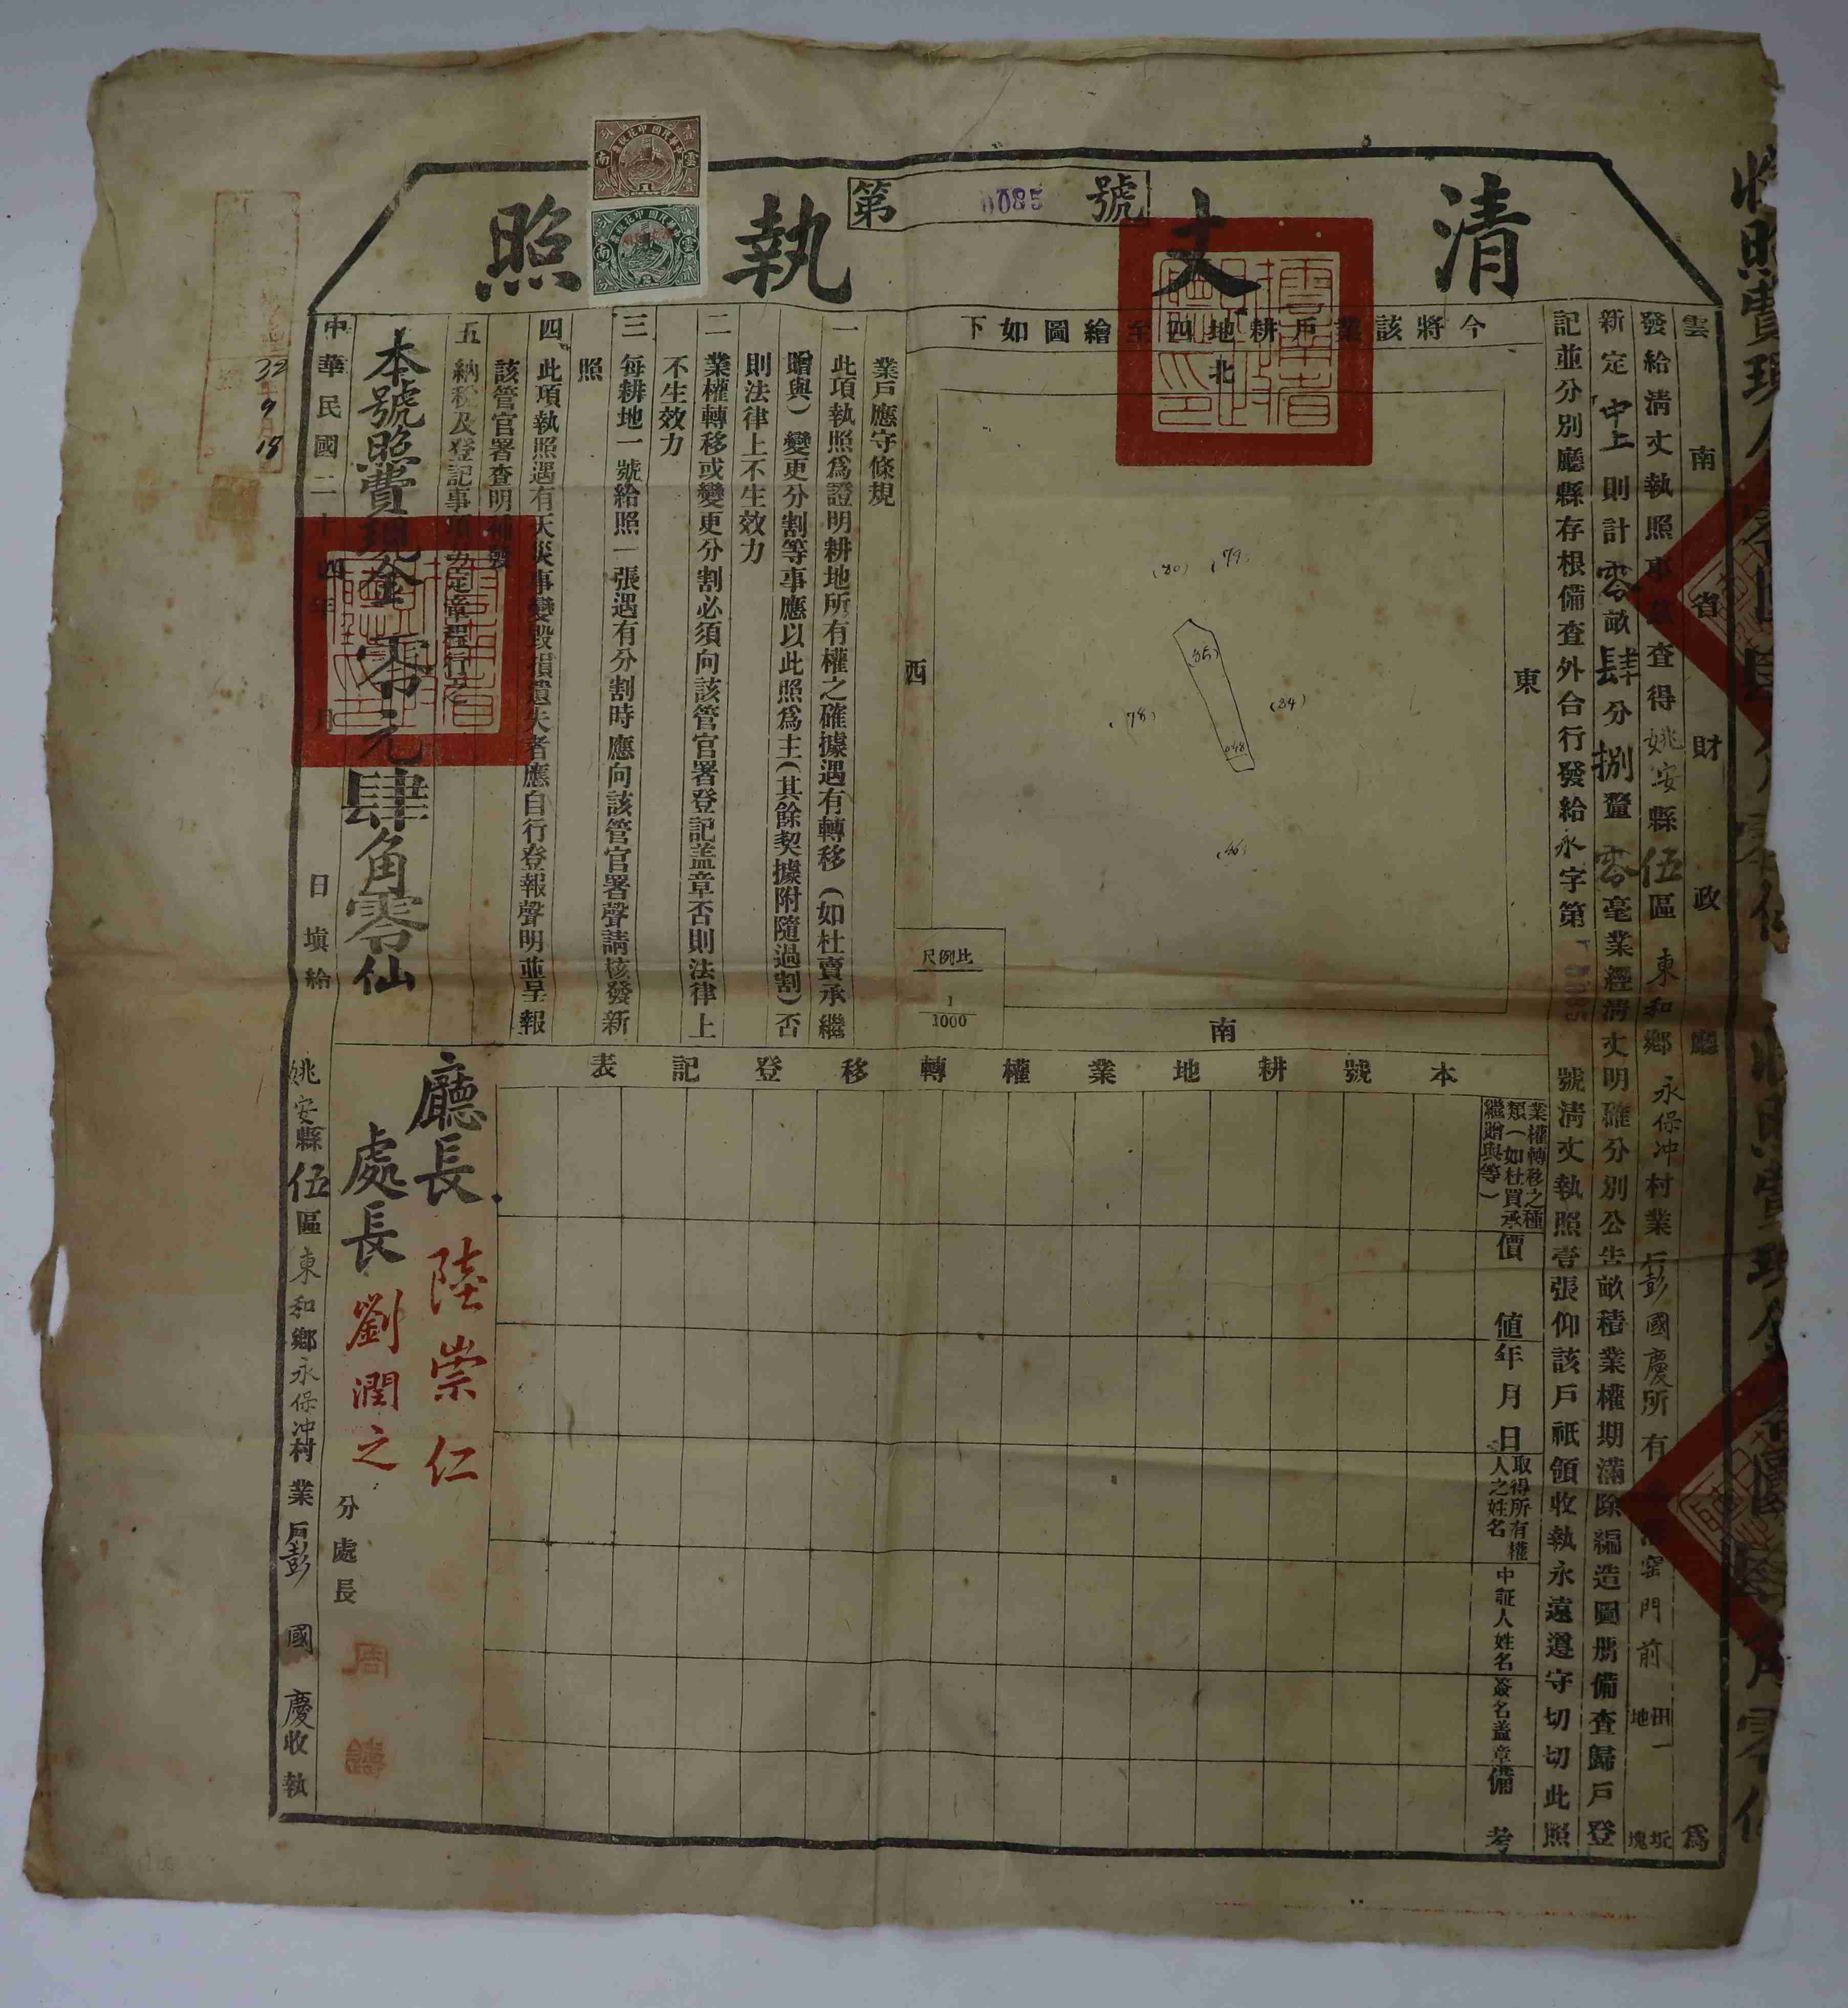 清丈執照
第0085號
雲南省財政廳為
發給清丈執照事茲查得姚安縣伍區東和鄉永保冲村業戶彭國慶所有
窑門前田地一坵塊
新定中上則計零畝肆分捌釐零毫業經清丈明確分別公告畝積業權期滿除編造圖册備查歸戶登
記並分別廳縣存根備查外合行發給永字第
號清丈執照壹張仰該戶祇領收執永遠遵守切切此照
今將該業戶耕地四至繪圖如下
北
東
西
南
(80)
(79)
(85)
(78)
(84)
048
(46)
比例尺
1
1000
業戶應守條規
一 此項執照為證明耕地所有權之確據遇有轉移(如杜賣承繼
贈與)變更分割等事應以此照為主(其餘契據附隨過割)否
則法律上不生效力
二 業權轉移或變更分割必須向該管官署登記蓋章否則法律上
不生效力
三 每耕地一號給照一張遇有分割時應向該管官署聲請核發新
照
四 此項執照遇有天災事變毀損遺失者應自行登報聲明並呈報
該管官署查明補發
五 納稅及登記事項另定章程行之
本號照費現金零元肆角零仙
中華民國二十四年 月 日填給
姚安縣伍區東和鄉永保冲村業戶彭國慶收執
本號耕地業權轉移登記表
業權轉移之種類(如杜買承繼贈與等)
價值
年月日
取得所有權人之姓名
中証人姓名
簽名蓋章
備考
廳長 陸崇仁
處長 劉潤之
分處長
32 9 月 18